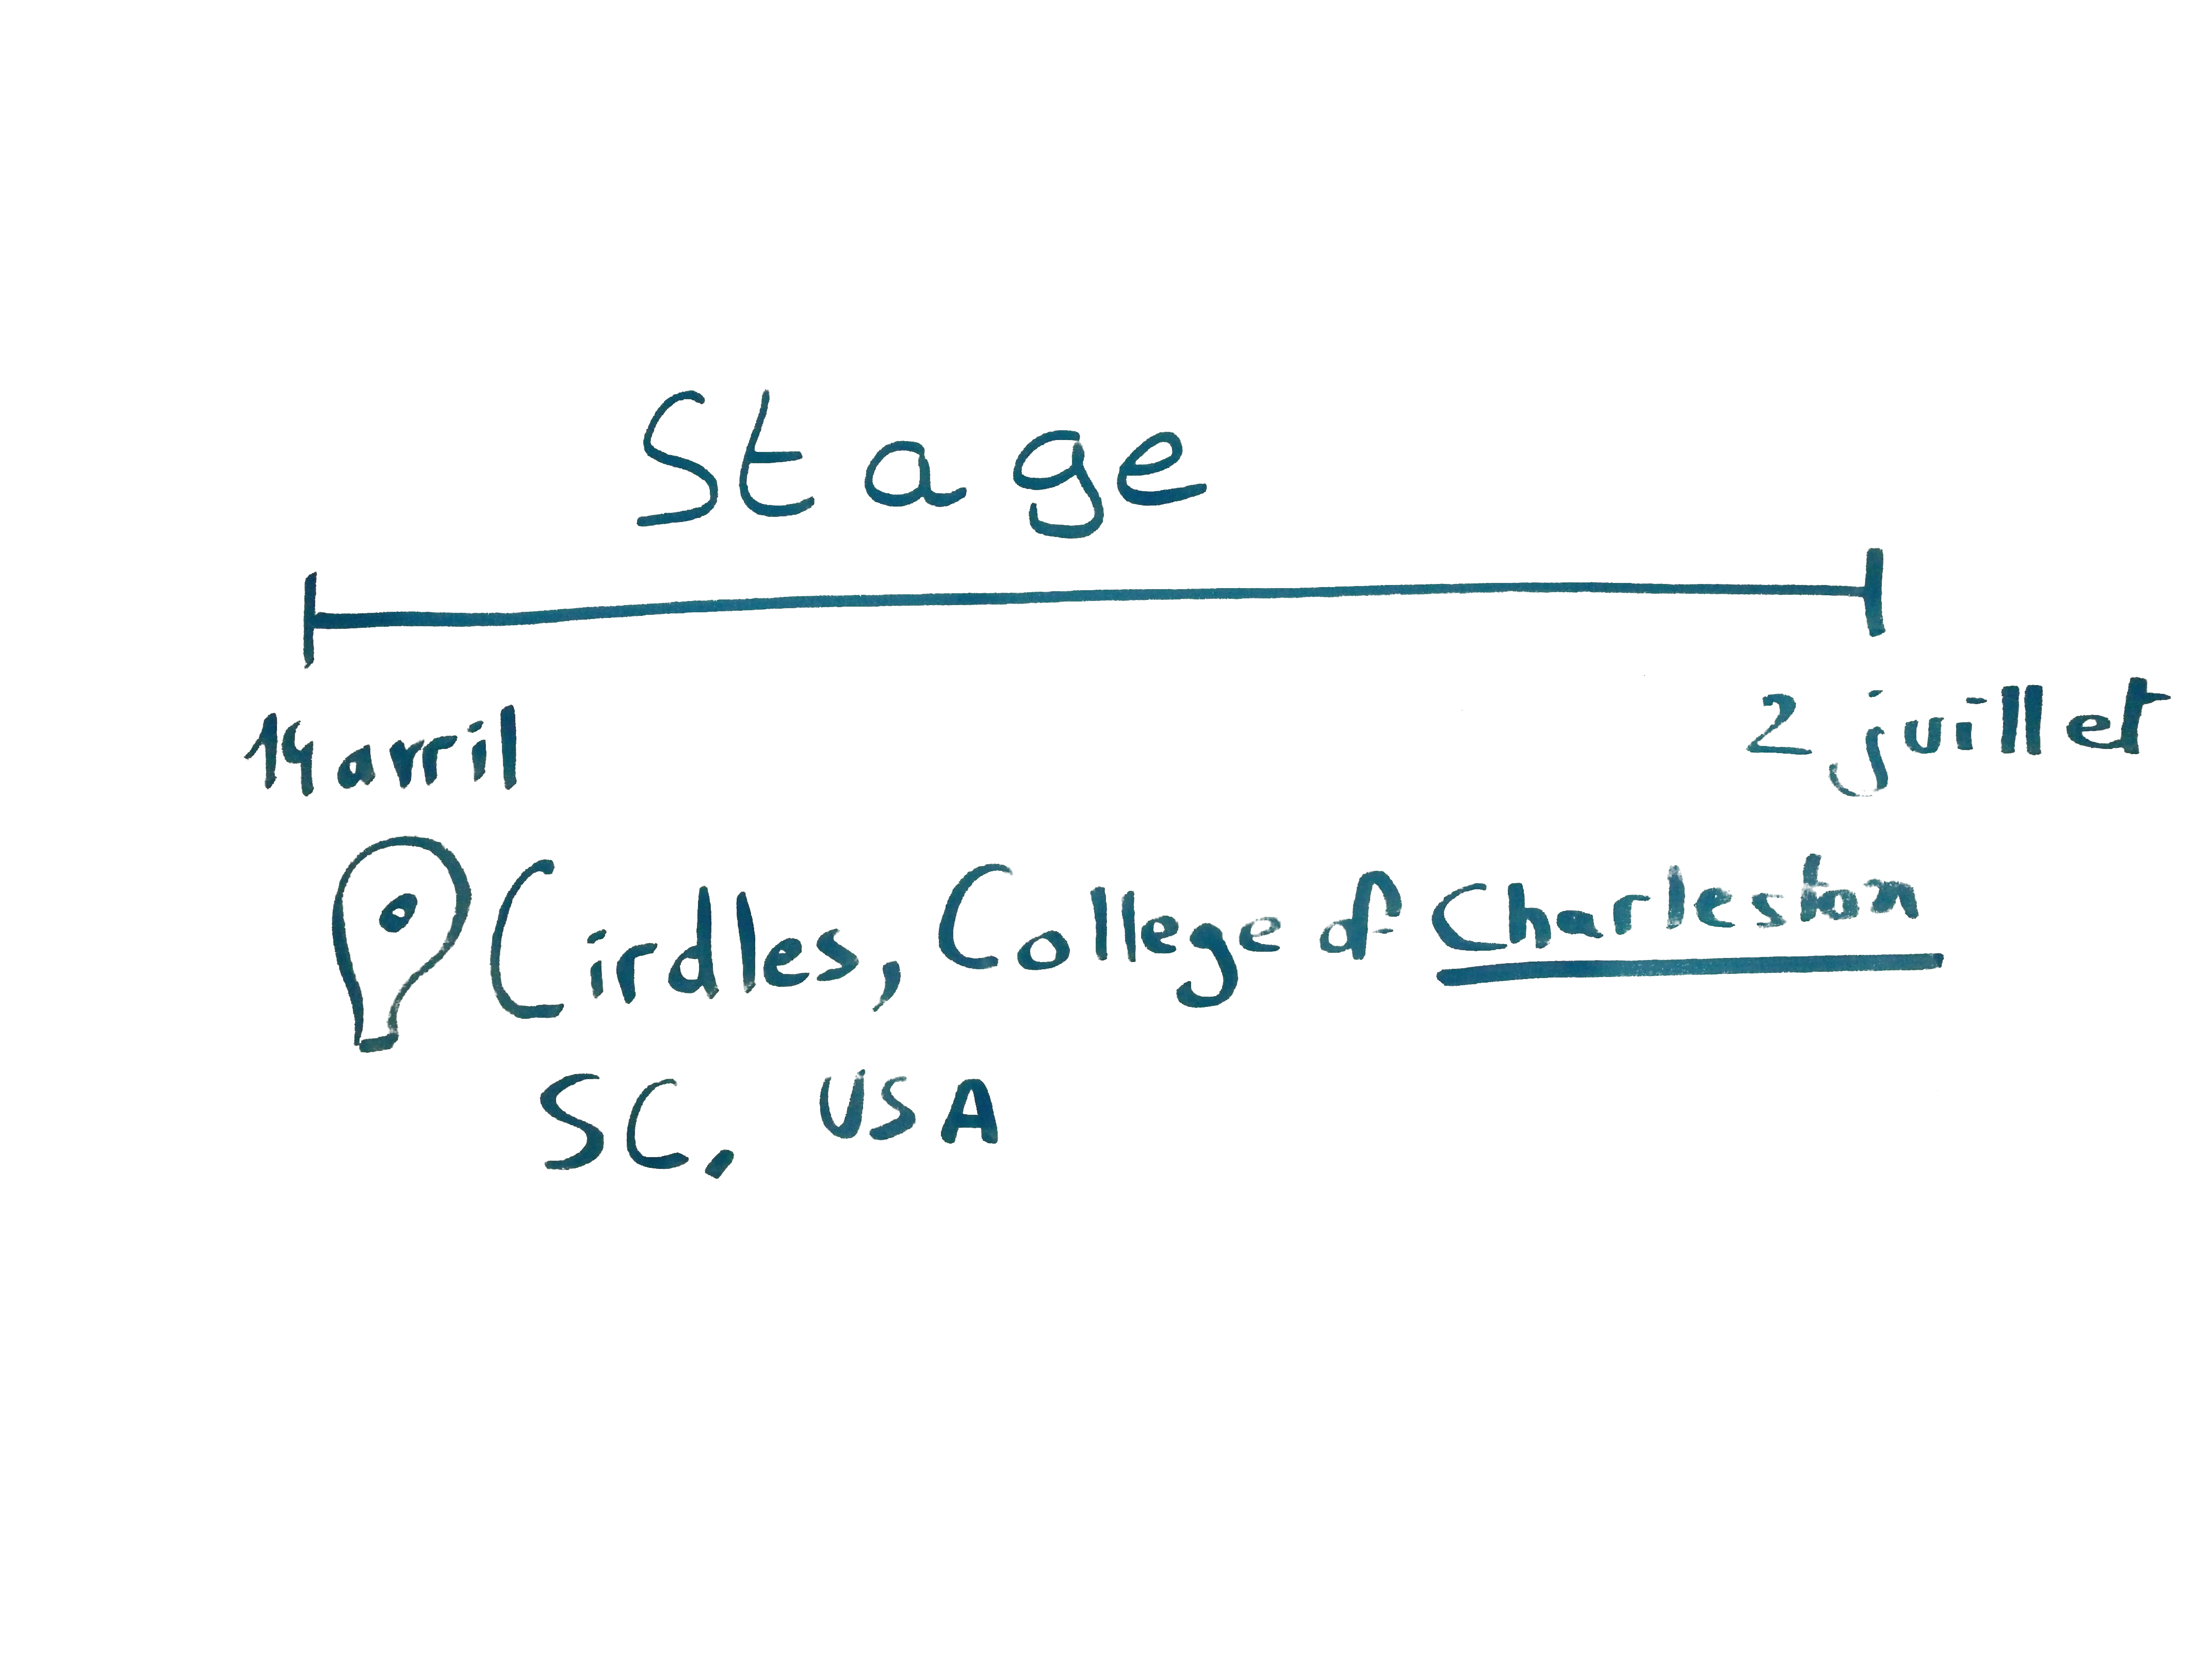 Stage
14 avril
2 juillet
Cirdles, College of Charleston
SC, USA